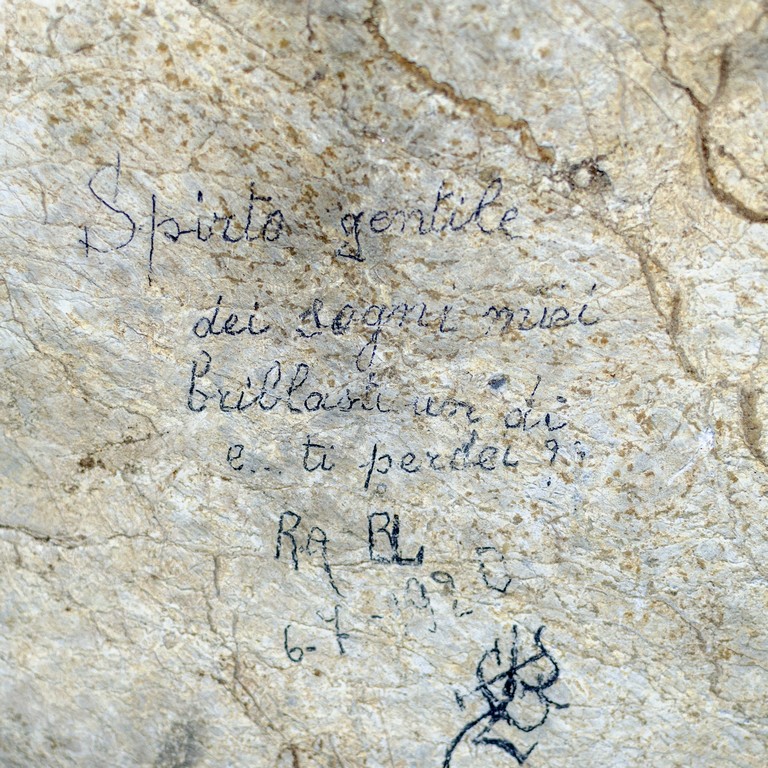 Spirto gentile
dei sogni miei
brillasti un di
e... ti perdei ?
Rq BL
6-7-192